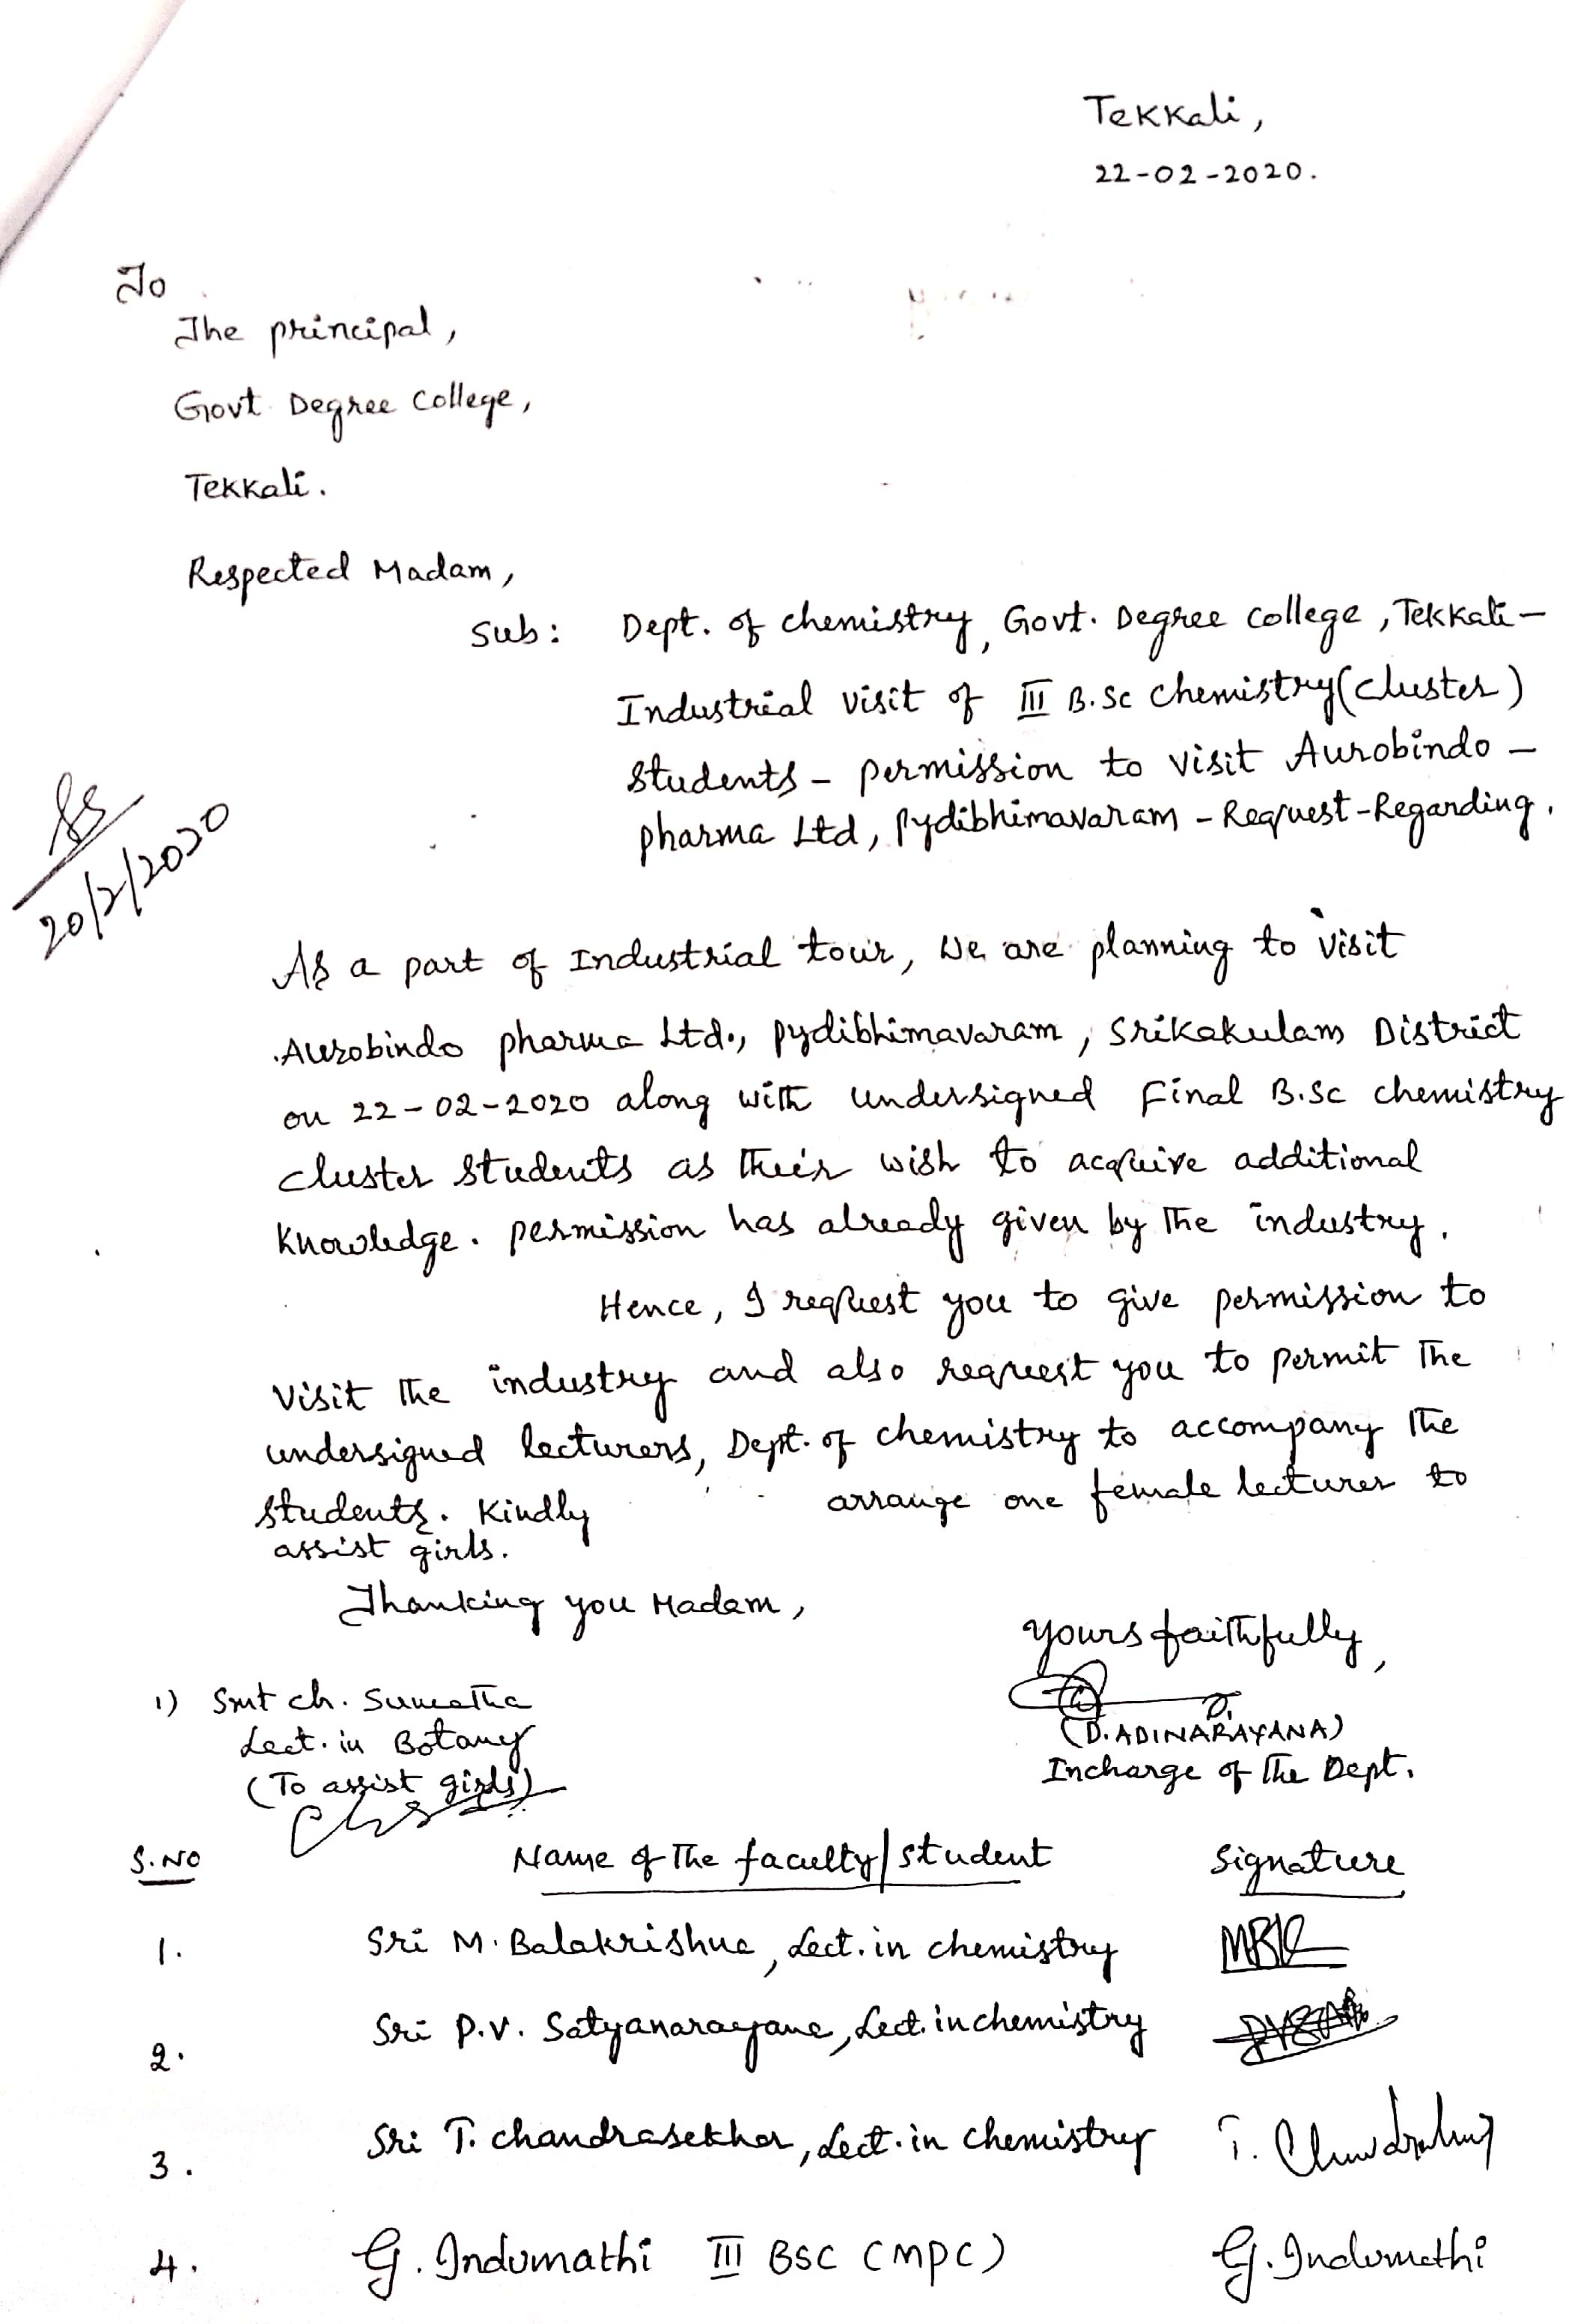 Tekkali,
22-02-2020.
To
The principal,
Govt Degree College,
Tekkali.
Respected Madam,
Sub: Dept. of chemistry, Govt. Degree college, Tekkali -
Industrial visit of III B.Sc chemistry (cluster)
students - permission to visit Aurobindo -
pharma Ltd, Pydibhimavaram - Request - Regarding.
20/2/2020
As a part of Industrial tour, We are planning to visit
Aurobindo pharma Ltd., pydibhimavaram, Srikakulam District
on 22-02-2020 along with undersigned Final B.Sc chemistry
cluster students as their wish to acquire additional
knowledge. permission has already given by the industry.
Hence, I request you to give permission to
visit the industry and also request you to permit the
undersigned lecturers, Dept. of chemistry to accompany the
students. Kindly arrange one female lecturer to
assist girls.
Thanking you Madam,
yours faithfully,
(D. ADINARAYANA)
Incharge of the Dept.
1) Smt ch. Suneetha
Lect. in Botany
(To assist girls)
S.NO Name of the faculty/student Signature
1. Sri M. Balakrishna, Lect. in chemistry MBK
2. Sri P.V. Satyanarayana, Lect. in chemistry
3. Sri T. chandrasekhar, Lect. in chemistry
4. G. Indumathi III BSC (MPC) G. Indumathi